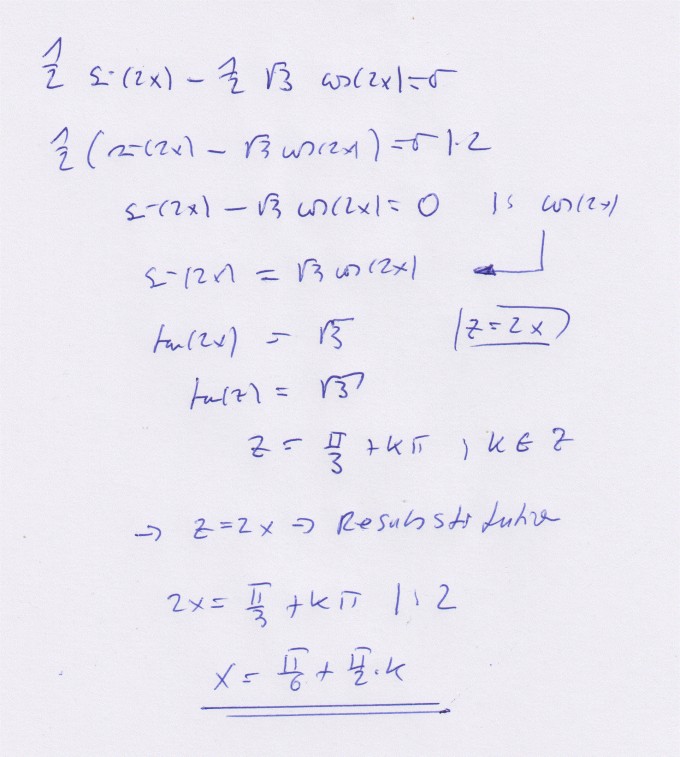 1/2 sin(2x) - 1/2 √3 cos(2x) = 0
1/2 (sin(2x) - √3 cos(2x)) = 0 | · 2
sin(2x) - √3 cos(2x) = 0 | : cos(2x)
sin(2x) = √3 cos(2x)
tan(2x) = √3 | z = 2x
tan(z) = √3
z = π/3 + kπ ; k ∈ Z
→ z = 2x ⇒ Resubstitution
2x = π/3 + kπ | : 2
x = π/6 + π/2 · k